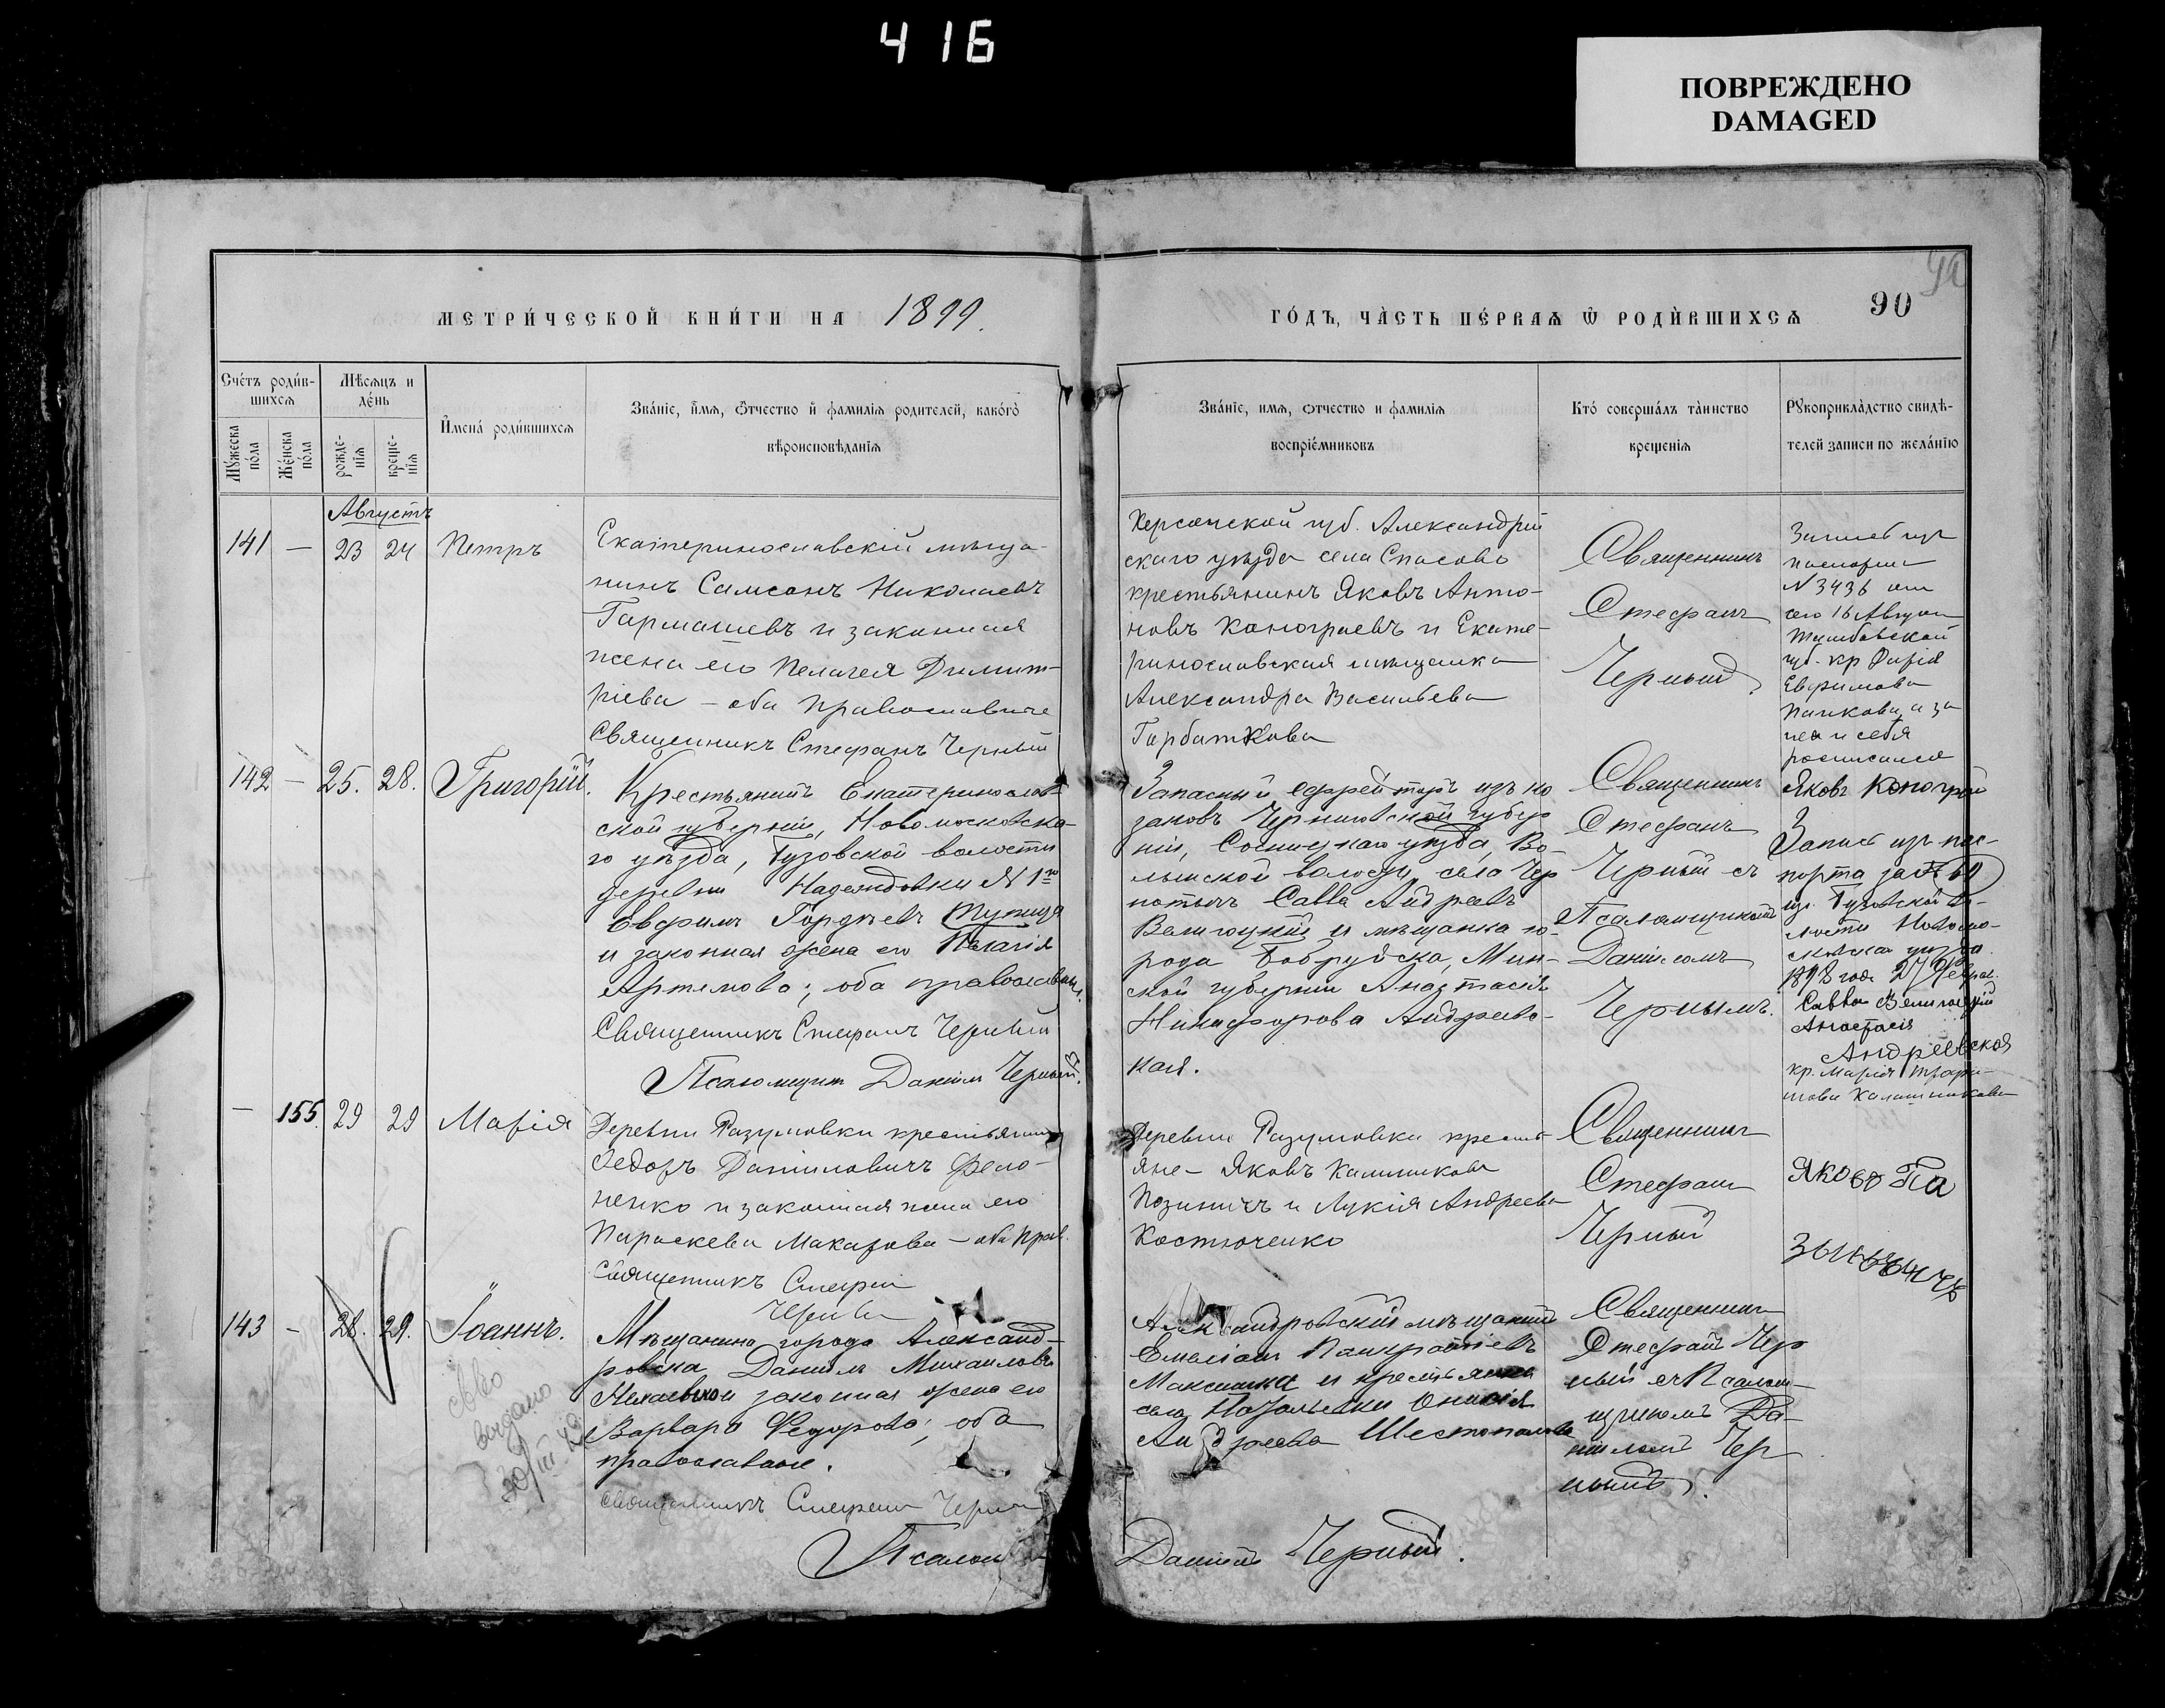 416
ПОВРЕЖДЕНО
DAMAGED
МЕТРИ́ЧЕСКОЙ КНИ́ГИ НА 1899.
ГО́ДЪ, ЧА́СТЬ ПЕ́РВАЯ Ѿ РОДИ́ВШИХСЯ
90
Сче́тъ роди́в-
шихся
Мѣсяцъ и
де́нь
Мꙋ́жеска
по́ла
Же́нска
по́ла
рожде-
нія
креще-
нія
И́мена́ роди́вшихся
Зва́ніе, и́мя, ѻ́тчество и́ фамилія родителей, како́гѡ
вѣроисповѣданія
Зва́ніе, имя, ѻтчество и фамилія
воспріе́мниковъ
Кто́ соверша́лъ та́инство
крещенія
Рꙋкоприкла́дство свидѣ-
телей записи по жела́нію
Августъ
141 — 23 24 Петръ
Екатеринославскій мѣща-
нинъ Самсонъ Николаевъ
Гармашевъ и законная
жена его Пелагея Димит-
ріева — оба православные
Священникъ Стефанъ Черный
Херсонской губ. Александрій
скаго уѣзда села Спасово
крестьянинъ Яковъ Анто-
новъ Конограевъ и Екате-
ринославская мѣщанка
Александра Васильева
Горбаткова
Священникъ
Стефанъ
Черный
N 3436
его 16 Август
губ. кр Дарія
Евфимова
Панкова, а за
нея и себя
росписался
Яковъ Коногрой
142 — 25. 28. Григорій.
Крестьянинъ Екатеринослав-
ской губерніи, Новомосковска-
го уѣзда, Гузовской волости
деревни Надеждовки № 1го
Евфимъ Гордѣевъ
и законная жена его Пелагія
Артемова; оба православные.
Священникъ Стефанъ Черный
Псаломщикъ Даніилъ Черный.
Запасный ефрейторъ изъ ко
заковъ Черниговской губер
ніи, Сосницкаго уѣзда, Во-
лынской волости, села Чер
нотичъ Савва Андреевъ
Велигоцкій и мѣщанка го-
рода Бобруйска, Мин-
ской губерніи Анастасія
Никифорова Андреевс-
кая.
Священникъ
Стефанъ
Черный съ
Псаломщикомъ
Даніиломъ
Чернымъ.
Запись изъ пас-
порта за № 60
из. Гузовской во-
лости Новомо-
сковска уѣзда
1898 года 27 Феврал.
Савва Велигоцкий
Анастасія
Андреевская
кр. Марія
Калашникова
— 155. 29 29 Марія
Деревни Разумовки крестьянинъ
Федоръ Даниловичъ Фело-
ненко и законная жена его
Параскева Макарова — оба прав.
Священникъ Стефан
Черный
Деревни Разумовки кресть-
яне — Яковъ Калинниковъ
и Лукія Андреева
Костюченко
Священникъ
Стефан
Черный
Яково Па
143 — 28. 29. Іоаннъ.
Мѣщанинъ города Александ-
ровска, Даніилъ Михаиловъ
законная жена его
Варвара Федорова; оба
православные.
Священникъ Стефан Черный
Александровскій мѣщанинъ
Емеліанъ Панкратіевъ
и крестьянка
села
Андреева Шестопалова
Священник
Стефанъ Чер
ный съ Псалом-
щикомъ Да-
ніиломъ Чер
нымъ.
выдано
30/III
Псалом
Даніилъ Черный.